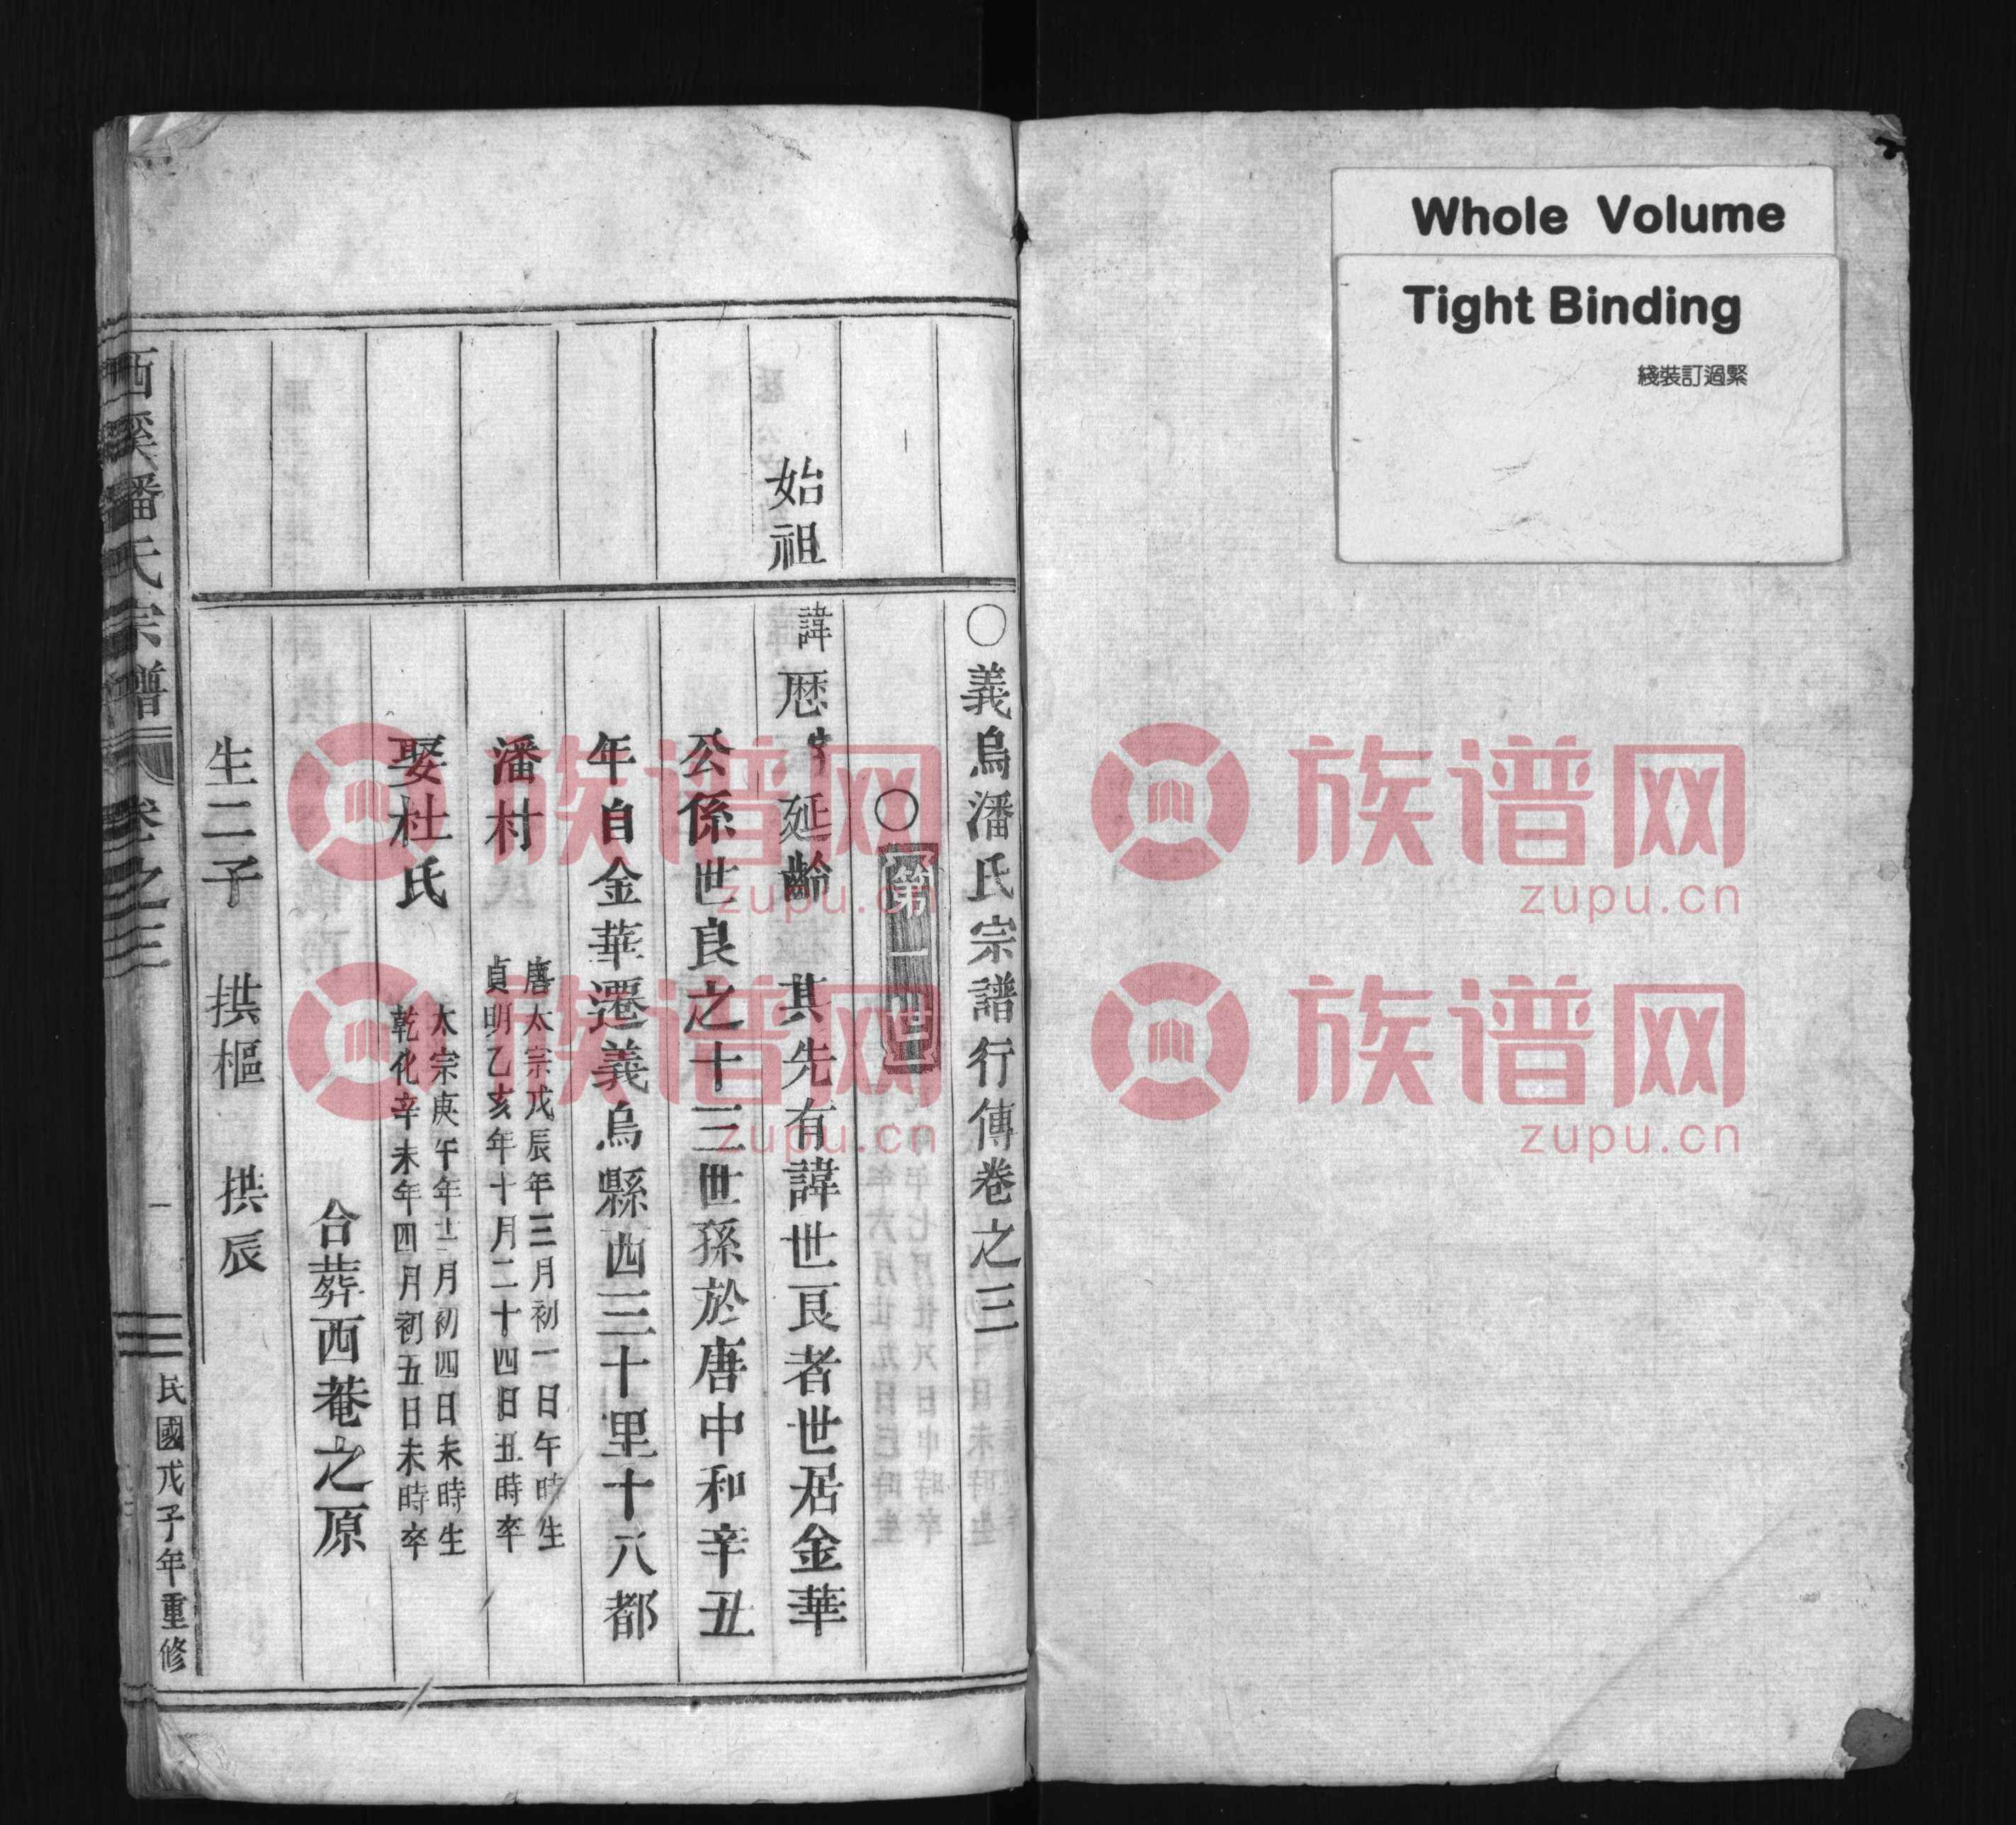 Whole Volume
Tight Binding
綫裝訂過緊
〇義烏潘氏宗譜行傳卷之三
〇第一世
始祖
諱歷字延齡 其先有諱世良者世居金華
公係世良之十三世孫於唐中和辛丑
年自金華遷義烏縣西三十里十八都
潘村
唐太宗戊辰年三月初一日午時生
貞明乙亥年十月二十四日丑時卒
娶杜氏
太宗庚午年十二月初四日未時生
乾化辛未年四月初五日未時卒
合葬西菴之原
生二子 拱樞 拱辰
西溪潘氏宗譜 卷之三 一 民國戊子年重修
族谱网
zupu.cn
族谱网
zupu.cn
族谱网
zupu.cn
族谱网
zupu.cn